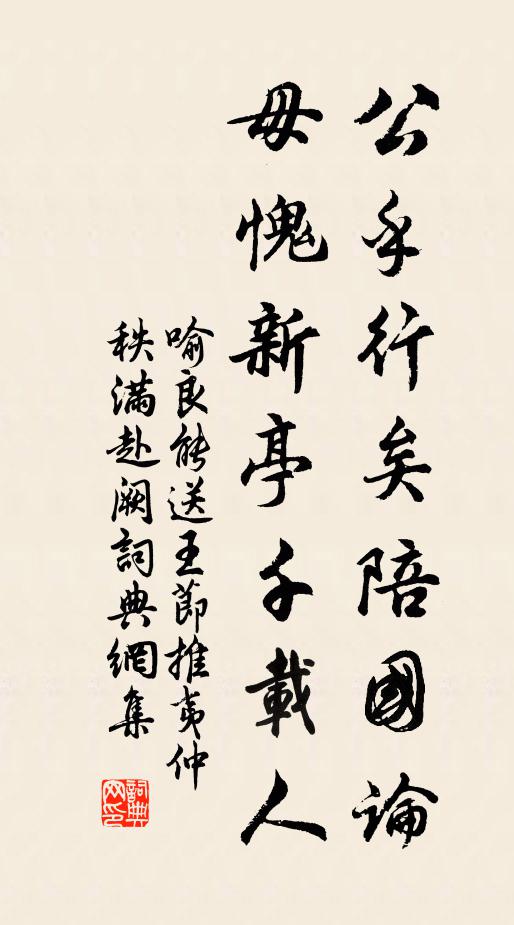 公乎行矣陪國論
毋愧新亭千載人
喻良能送王節推夷仲
秩滿赴闕詞典網集
詞典網印